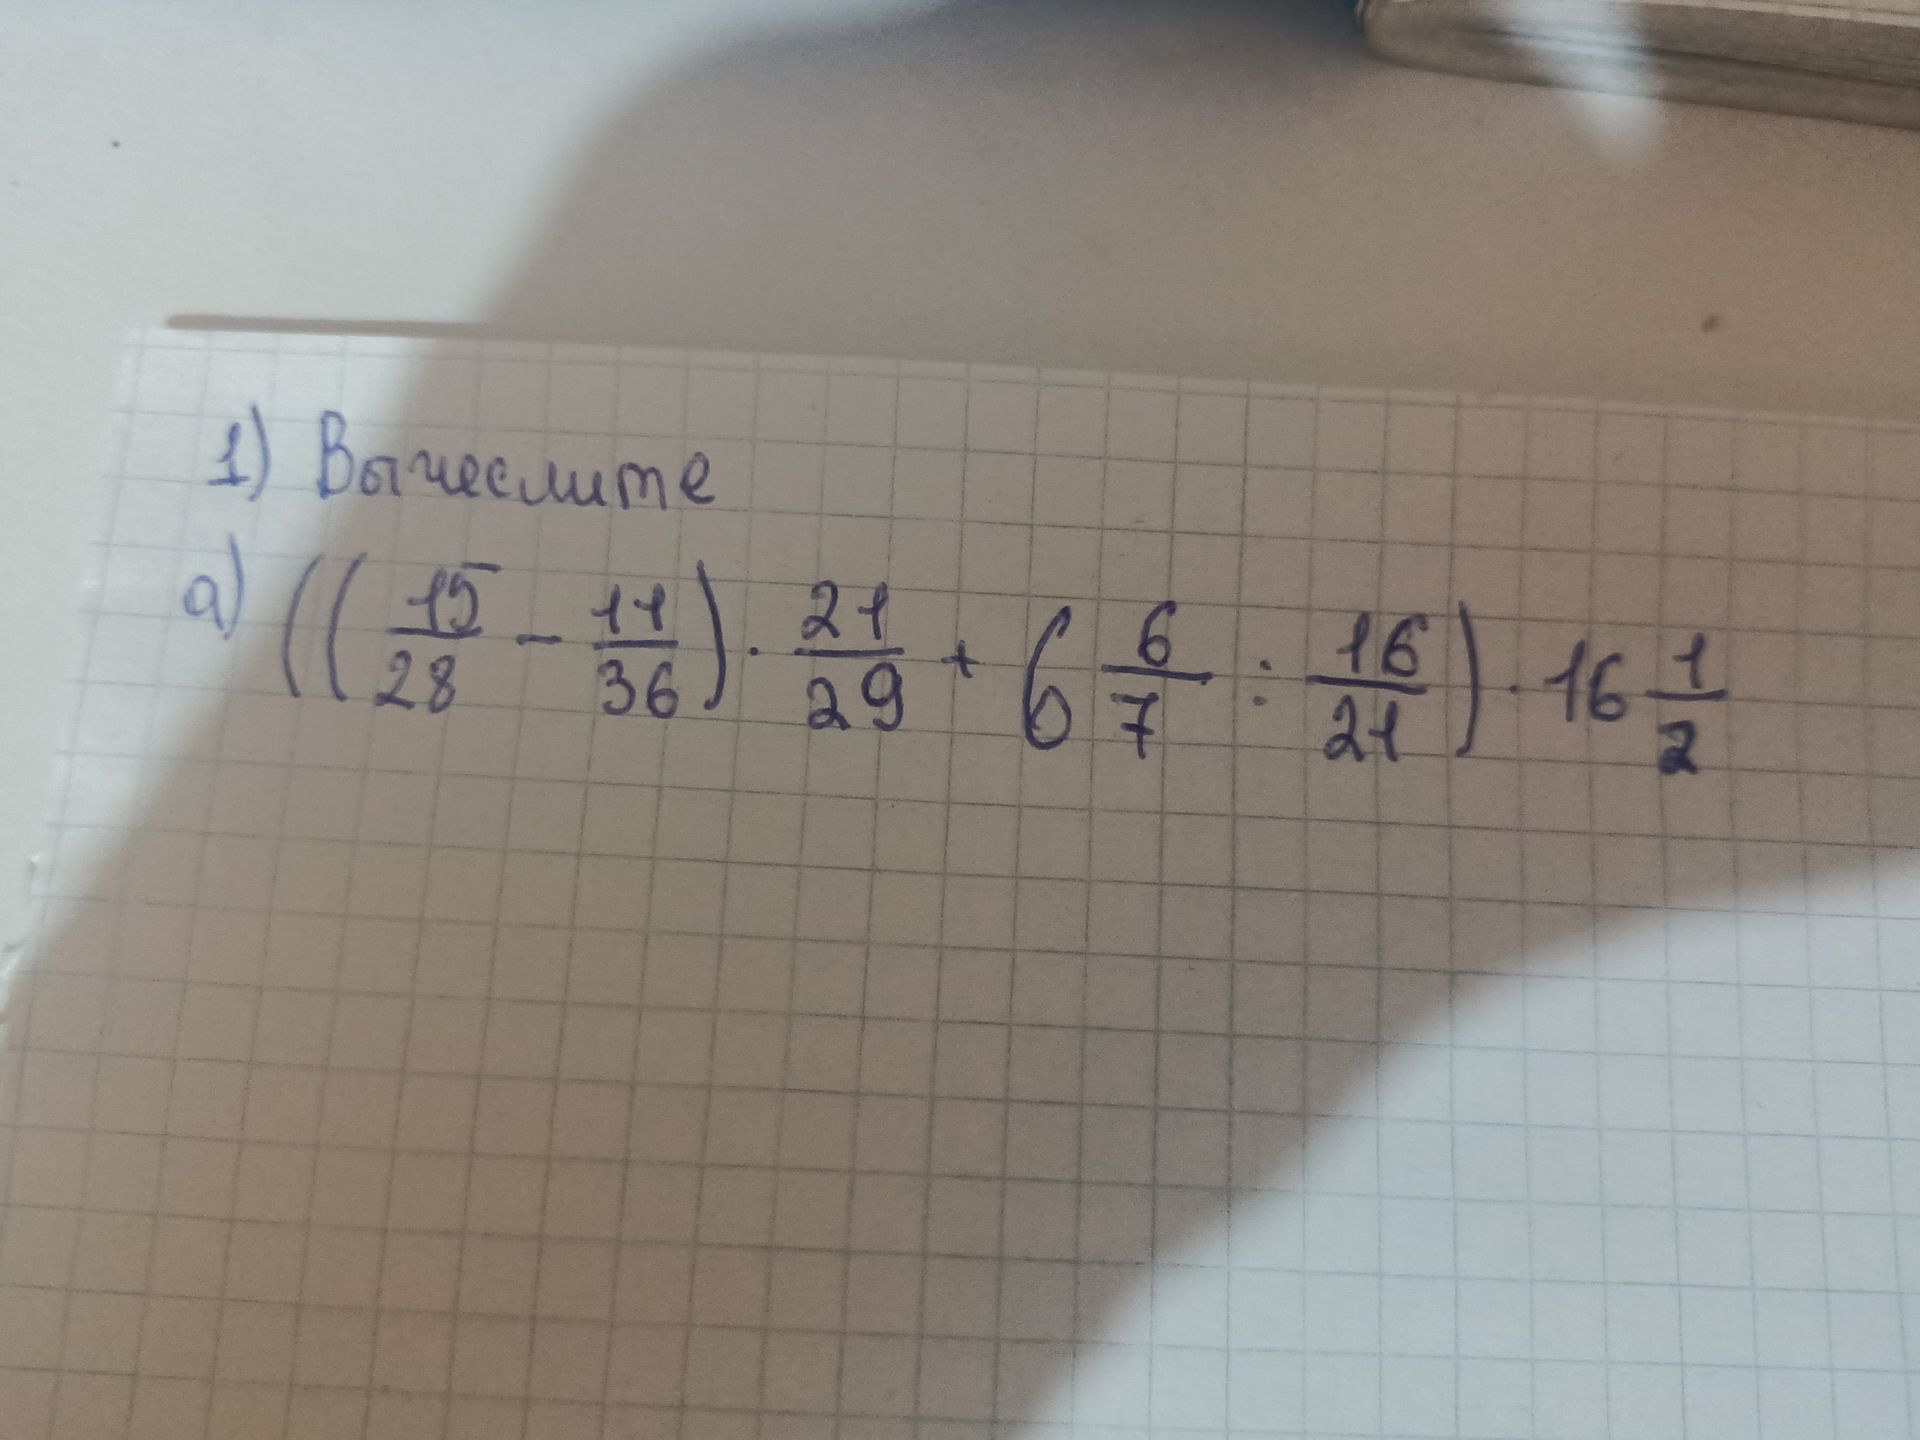 1) Вычеслите
а) ((15/28 - 11/36) · 21/29 + 6 6/7 : 16/21) · 16 1/2